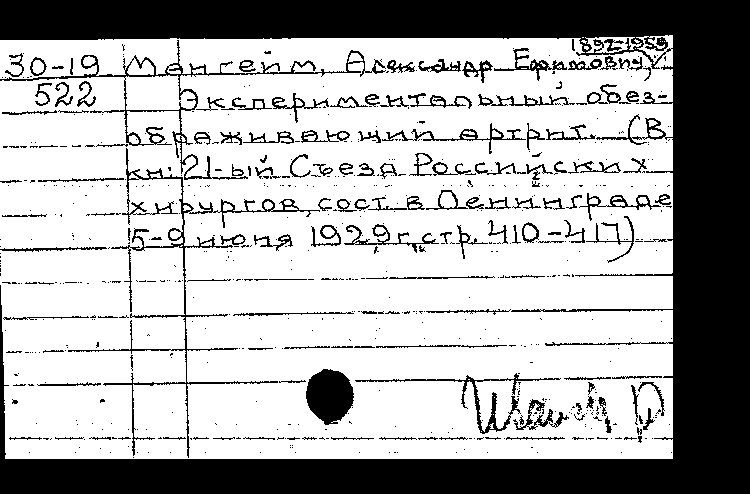 1892-1959
30-19 Мангейм, Александр Ефимович
522 Экспериментальный обез-
ображивающий артрит. (В
кн: 21-ый Съезд Российских
хирургов, сост. в Ленинграде
5-9 июня 1929 г., стр. 410-417)